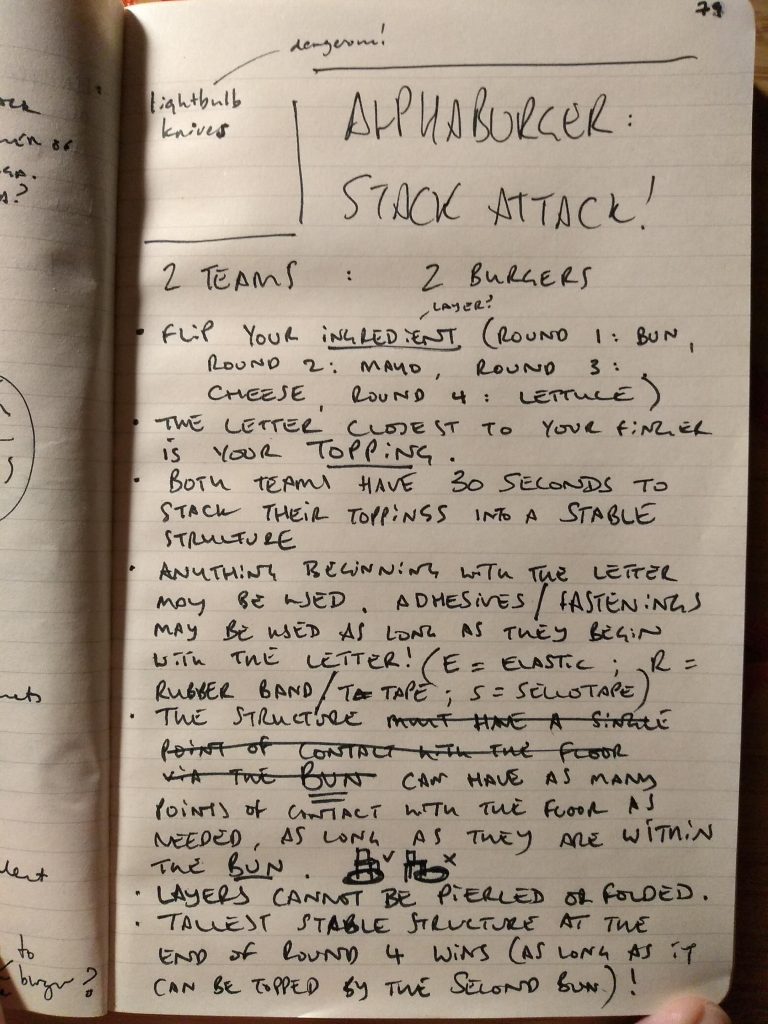 79
dangerous!
lightbulb
knives
ALPHABURGER:
STACK ATTACK!
2 TEAMS : 2 BURGERS
LAYER?
• FLIP YOUR INGREDIENT (ROUND 1: BUN,
ROUND 2: MAYO, ROUND 3:
CHEESE, ROUND 4: LETTUCE)
• THE LETTER CLOSEST TO YOUR FINGER
IS YOUR TOPPING.
• BOTH TEAMS HAVE 30 SECONDS TO
STACK THEIR TOPPINGS INTO A STABLE
STRUCTURE
• ANYTHING BEGINNING WITH THE LETTER
MAY BE USED. ADHESIVES/FASTENINGS
MAY BE USED AS LONG AS THEY BEGIN
WITH THE LETTER! (E = ELASTIC; R =
RUBBER BAND/T= TAPE; S = SELLOTAPE)
• THE STRUCTURE MUST HAVE A SINGLE
POINT OF CONTACT WITH THE FLOOR
VIA THE BUN CAN HAVE AS MANY
POINTS OF CONTACT WITH THE FLOOR AS
NEEDED, AS LONG AS THEY ARE WITHIN
THE BUN.
• LAYERS CANNOT BE PIERCED OR FOLDED.
• TALLEST STABLE STRUCTURE AT THE
END OF ROUND 4 WINS (AS LONG AS IT
CAN BE TOPPED BY THE SECOND BUN)!
to
burger?